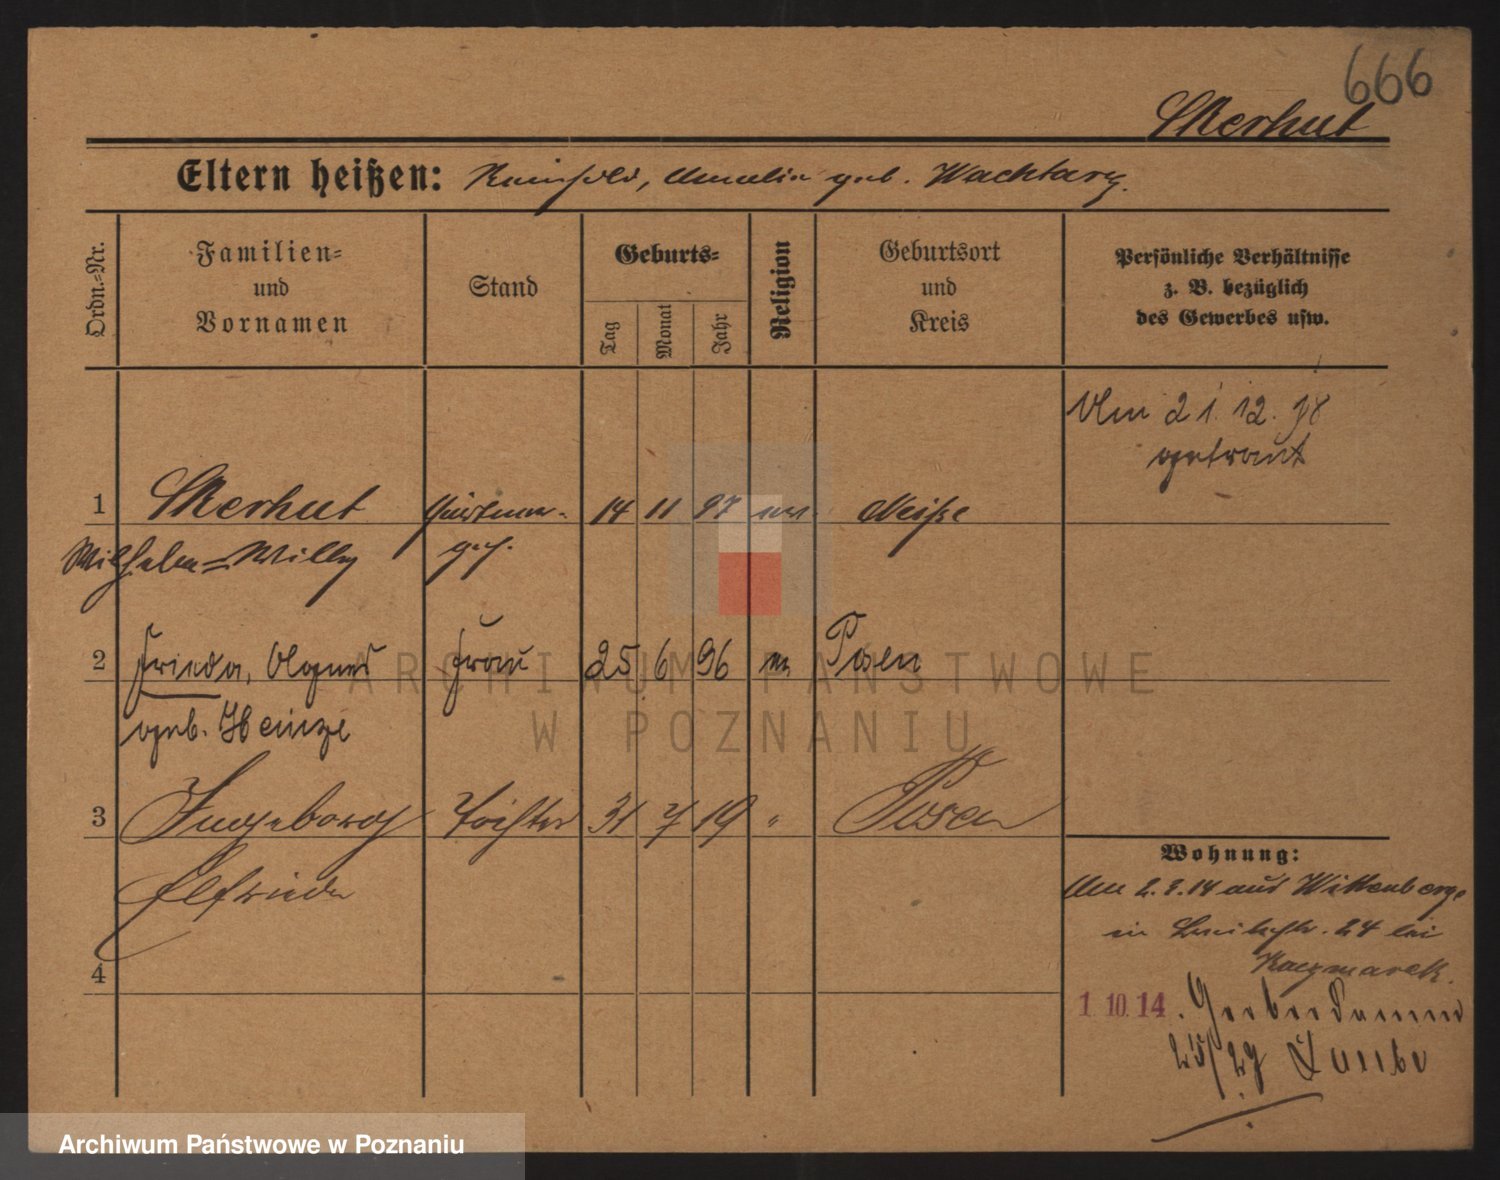 666
Skerhut
Eltern heißen: Reinhold, Amalie geb. Wachtarz.
Ordn.=Nr.
Familien=
und
Vornamen
Stand
Geburts=
Tag
Monat
Jahr
Religion
Geburtsort
und
Kreis
Persönliche Verhältnisse
z. B. bezüglich
des Gewerbes usw.
Am 21. 12. 18
getraut
1 Skerhut 14 11 97 ev. Neiße
Wilhelm=Willy ges.
2 Frieda, Agnes Frau 25 6 96 ev Posen
geb. Heinze
3 Ingeborg Tochter 31 7 19 " Posen
Elfriede
4
Wohnung:
Am 2. 2. 14 aus Wittenberge
in 24 bei
Kaczmarek.
1. 10. 14. Gerberdamm
25/29 Laube
ARCHIWUM PAŃSTWOWE
W POZNANIU
Archiwum Państwowe w Poznaniu